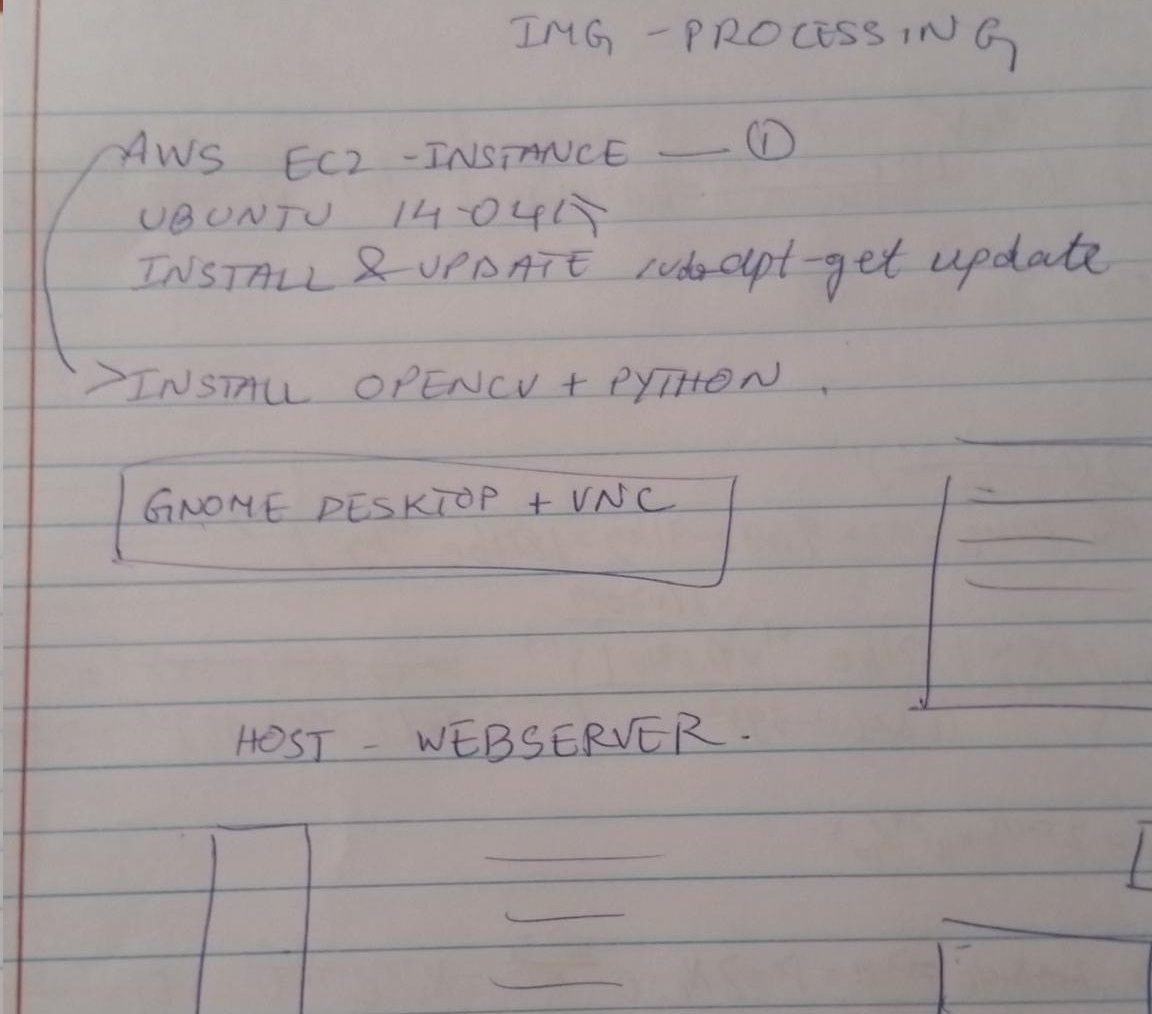 IMG - PROCESSING
AWS EC2 - INSTANCE — ①
UBUNTU 14-04
INSTALL & UPDATE sudo apt-get update
>INSTALL OPENCV + PYTHON .
GNOME DESKTOP + VNC
HOST - WEBSERVER.